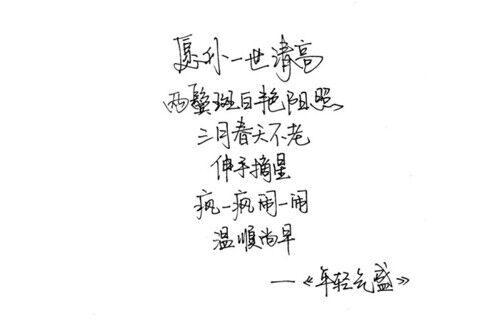 愿你一世清高
两鬓斑白艳阳照
三月春天不老
伸手摘星
疯一疯闹一闹
温顺尚早
—《年轻气盛》